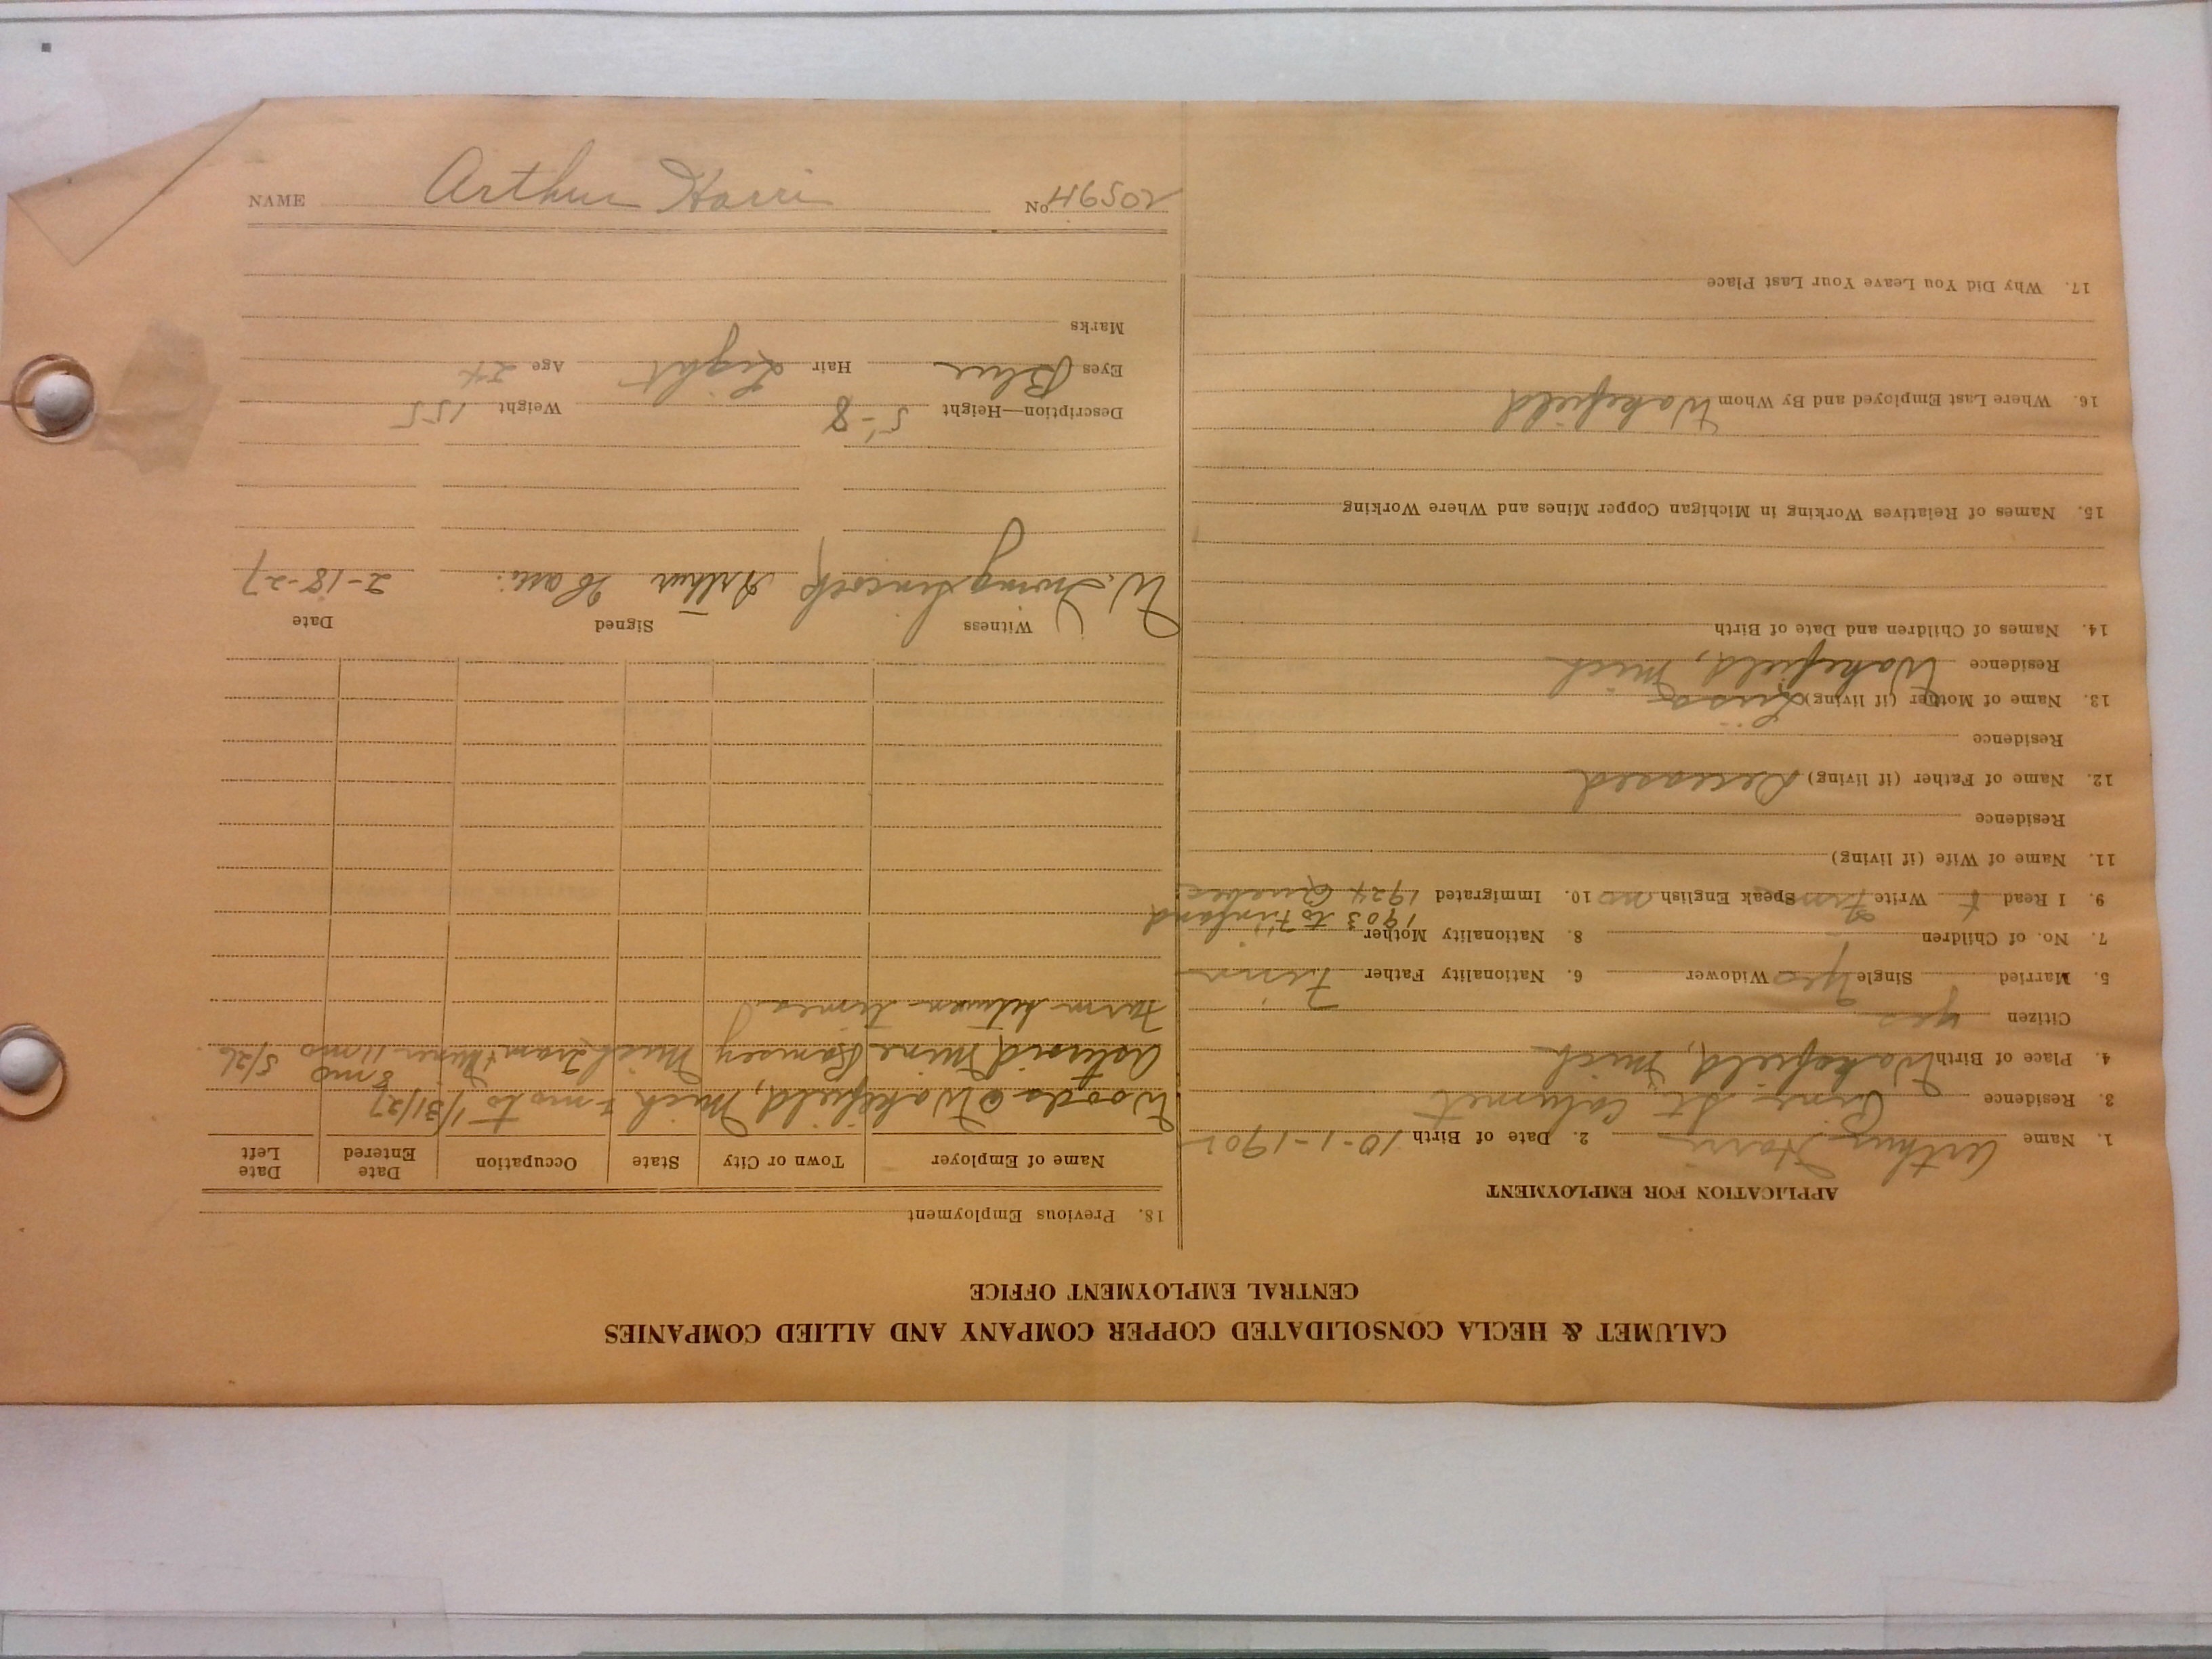 CALUMET & HECLA CONSOLIDATED COPPER COMPANY AND ALLIED COMPANIES
CENTRAL EMPLOYMENT OFFICE
APPLICATION FOR EMPLOYMENT
1. Name Arthur Harri 2. Date of Birth 10-1-1902
3. Residence Pine St. Calumet
4. Place of Birth Wakefield, Mich
Citizen yes
5. Married Single Yes Widower 6. Nationality Father Finn
7. No. of Children 8. Nationality Mother
1903 to Finland
9. I Read F Write Finn Speak English no 10. Immigrated 1924 Quebec
11. Name of Wife (if living)
Residence
12. Name of Father (if living) Deceased
Residence
13. Name of Mother (if living) Lisa
Residence Wakefield, Mich
14. Names of Children and Date of Birth
15. Names of Relatives Working in Michigan Copper Mines and Where Working
16. Where Last Employed and By Whom Wakefield
17. Why Did You Leave Your Last Place
18. Previous Employment
Name of Employer Town or City State Occupation Date Entered Date Left
Woods @ Wakefield, Mich 7 mo to 1/31/27
8 mo
Asteroid Mine Ramsey Mich Tram + Miner 11 mo 5/26
Farm between times
Witness Signed Date
W. Irving Hincock Arthur Harri 2-18-27
Description—Height 5'-8 Weight 155
Eyes Blue Hair Light Age 24
Marks
NAME Arthur Harri No 20594